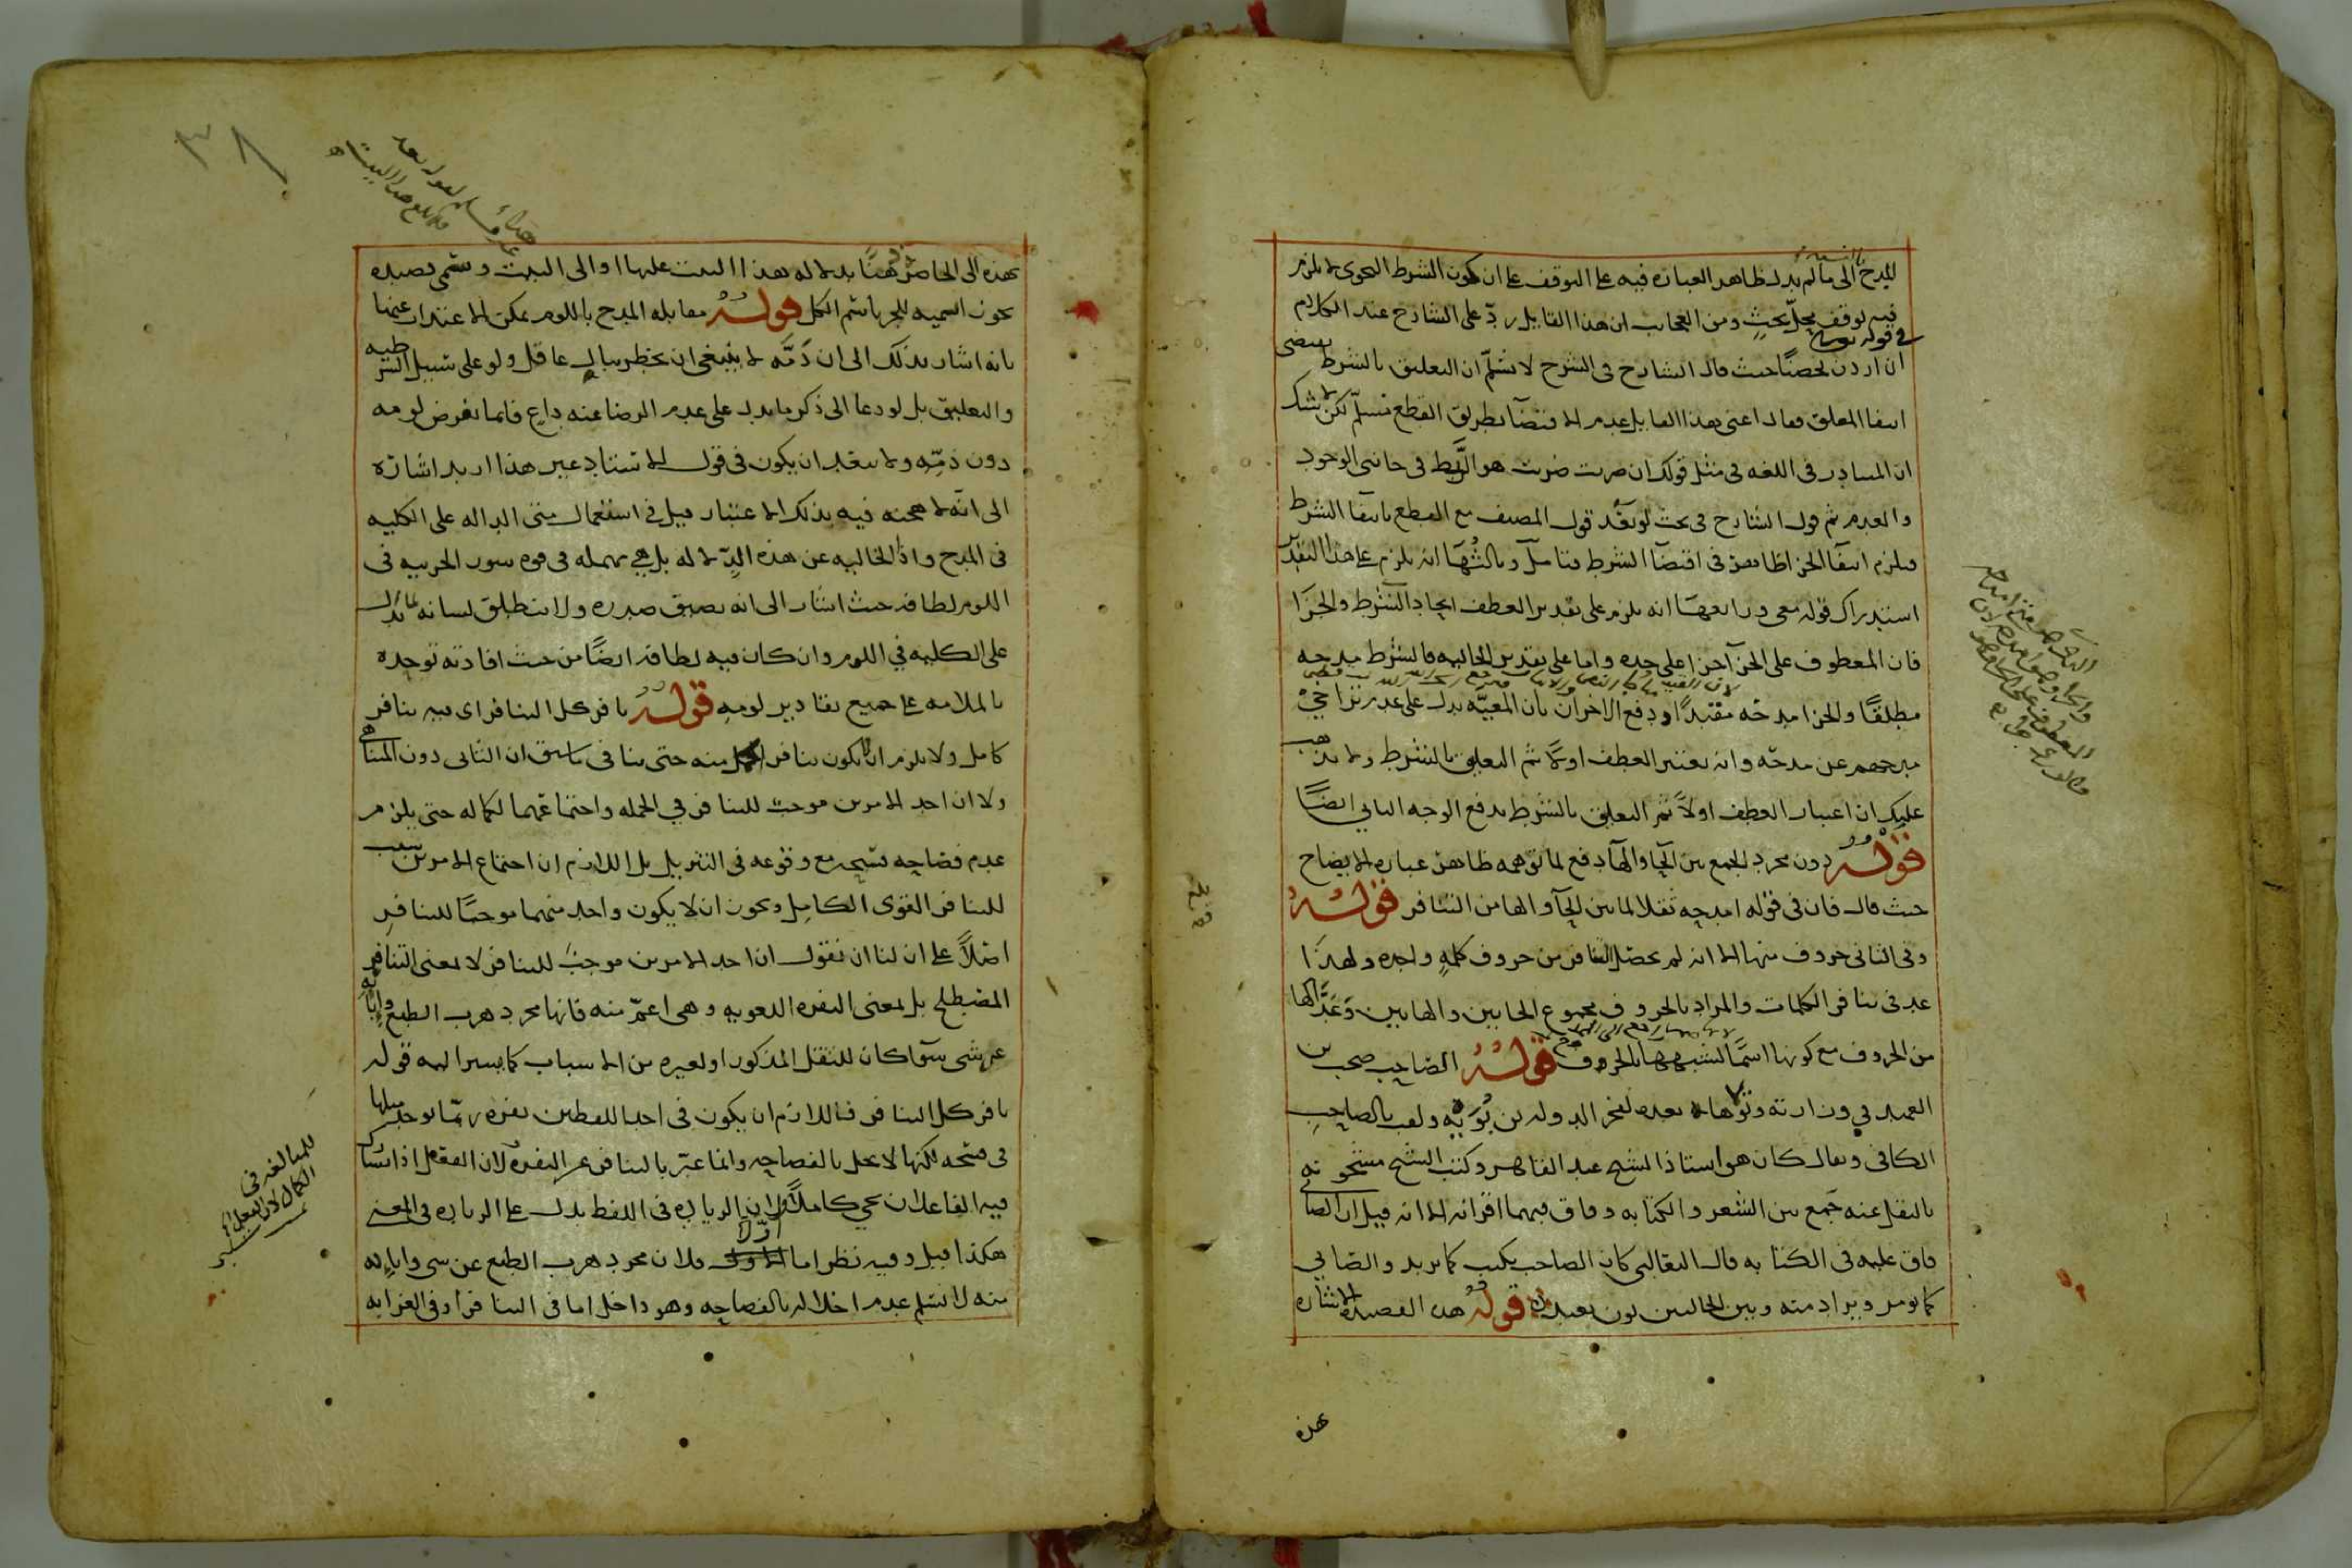 المدح الى ما لم يدل ظاهر العبارة فيه على التوقف على ان كون الشرط النحوى لا يلزم
فيه توقف محل بحث ومن العجائب ان هذا القايل رد على الشارح عند الكلام
فى قوله تعالى
ان اردن تحصنا حيث قال الشارح فى الشرح لا نسلم ان التعليق بالشرط يقتضى
انتفا المعلق فقال اعنى هذا القايل عدم الاقتضا بطريق القطع مسلم لكن لا شك
ان المتبادر فى اللغه فى مثل قولك ان ضربت ضربت هو الربط فى جانبى الوجود
والعدم ثم قول الشارح فى بحث لو بعد قول المصنف مع القطع بانتفا الشرط
فيلزم انتفا الجزا ظاهر فى اقتضا الشرط فتامل وثالثها انه يلزم على هذا التقدير
استدراك قوله معى ورابعها انه يلزم على تقدير العطف اتحاد الشرط والجزا
فان المعطوف على الجزآ جزا على حده واما على تقدير الحاليه فالشرط مدحه
مطلقا والجزا مدحه مقيدا ودفع الاخران بان المعيه يدل على عدم تراخى
مدحهم عن مدحه وانه يعتبر العطف اولا ثم التعليق بالشرط ولا يذهب
عليك ان اعتبار العطف اولا ثم التعليق بالشرط يدفع الوجه الثانى ايضا
قوله دون مجرد الجمع بين الحآ والهآ دفع لما توهمه ظاهر عباره الايضاح
حيث قال فان فى قوله امدحه ثقلا لما بين الحآ والها من التنافر قوله
وفى الثانى حروف منها الا انه لم يحصل التنافر من حروف كلمة واحده ولهذا
عد فى تنافر الكلمات والمراد بالحروف مجموع الحايين والهايين وعد الها
من الحروف مع كونها اسما لشبهها بالحروف قوله الصاحب صحب بن
العميد فى وزارته وتولاها بعده لفخر الدوله بن بويه ولقب بالصاحب
الكافى ويقال كان هو استاذ الشيخ عبد القاهر وكتب الشيخ مشحونه
بالنقل عنه جمع بين الشعر والكتابه وفاق فيهما اقرانه الا انه قيل ان الصابى
فاق عليه فى الكتابه قال الثعالبى كان الصاحب يكتب كما يريد والصابى
كما يومر ويراد منه وبين الحالين بون بعيد قوله هذه القصيده الاشاره
هذه
٣٨
بهذه الى الحاضر ذهنا بدلاله هذا البيت عليها او الى البيت وسمى قصيده
تجوزا تسميه للجزء باسم الكل قوله مقابله المدح باللوم يمكن الاعتذار عنها
بانه اشار بذلك الى ان ذمه لا ينبغى ان يخطر ببال عاقل ولو على سبيل الشرطيه
والتعليق بل لو دعا الى ذكر ما يدل على عدم الرضا عنه داع فانما يفرض لومه
دون ذمه ولا يبعد ان يكون فى قول الاستاد غير هذا اريد اشارة
الى انه لا هجنه فيه بذلك الاعتبار قيل فى استعمال متى الداله على الكليه
فى المدح واذا الخاليه عن هذه الدلاله بل هى مهمله فى قوه سور الجزييه فى
اللوم لطافه حيث اشار الى انه يضيق صدره ولا ينطلق لسانه بما يدل
على الكليه فى اللوم وان كان فيه لطافه ايضا من حيث افادته توحده
بالملامه على جميع تقادير لومه قوله نافر كل التنافر اى فيه تنافر
كامل ولا يلزم ان لا يكون تنافر اكمل منه حتى ينافى ما سبق ان الثانى دون المتناهى
ولا ان احد الامرين موجب للتنافر فى الجمله واجتماعهما لكماله حتى يلزم
عدم فصاحه فسبحه مع وقوعه فى التنزيل بل اللازم ان اجتماع الامرين سبب
للتنافر القوى الكامل ويجوز ان لا يكون واحد منهما موجبا للتنافر
اصلا على ان لنا ان نقول ان احد الامرين موجب للتنافر لا بمعنى التنافر
المصطلح بل بمعنى النفره اللغويه وهى اعم منه فانها مجرد هرب الطبع وابآئه
عن شى سوآ كان للثقل المذكور او لغيره من الاسباب كما يشير اليه قوله
نافر كل التنافر فاللازم ان يكون فى احد اللفظين نفره ربما يوجد مثلها
فى فسبحه لكنها لا يخل بالفصاحه وانما عبر بالتنافر عن النفره لان الفعل اذا تشارك
فيه الفاعلان يجى كاملا ولان الزياده فى اللفظ يدل على الزياده فى المعنى
هكذا قيل وفيه نظر اما اولا فلان مجرد هرب الطبع عن شى وابايه
منه لا نسلم عدم اخلاله بالفصاحه وهو داخل اما فى التنافر او فى الغرابه
للمبالغه فى
الكمال لان الفعل اذا